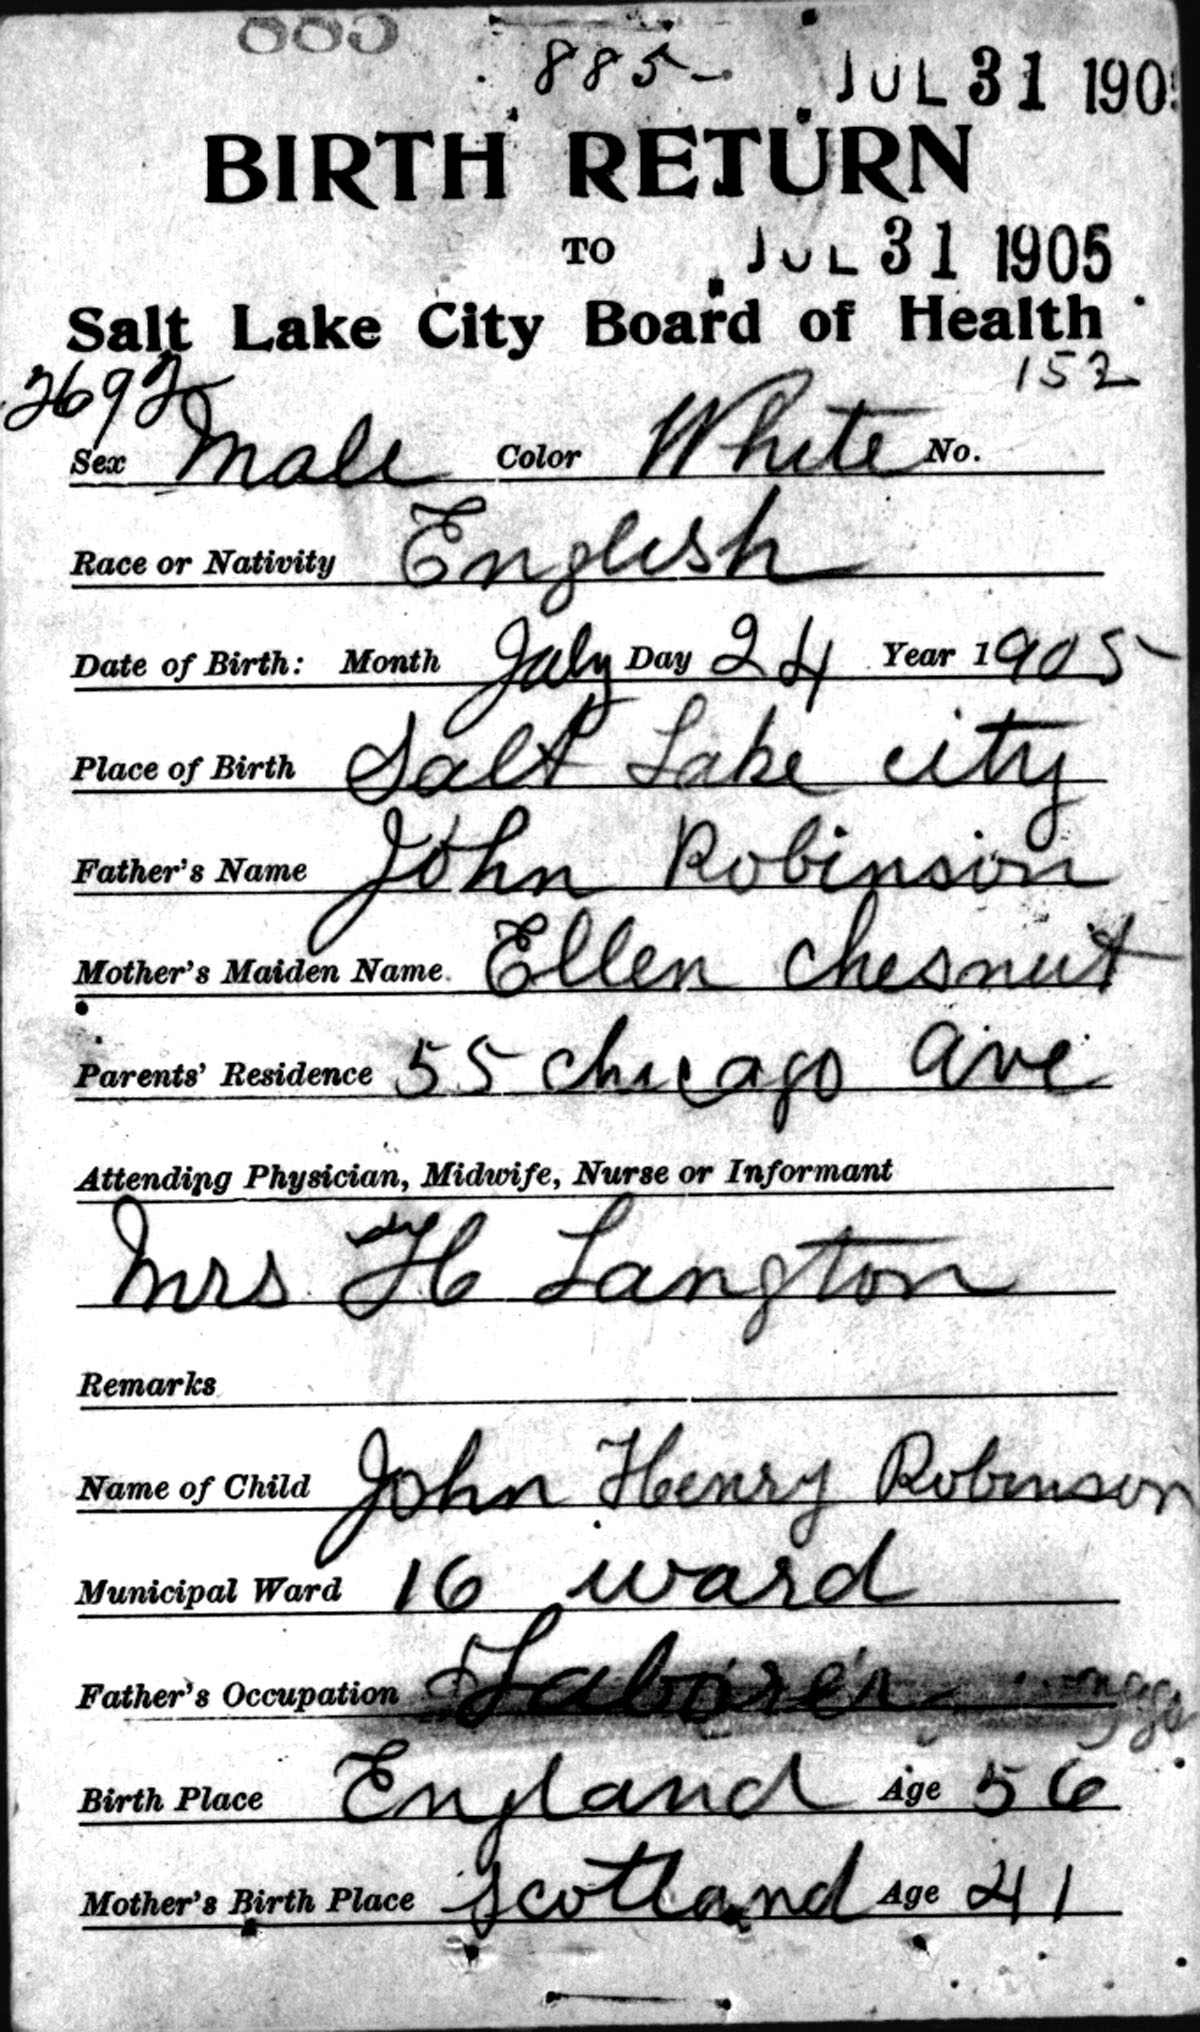 885
885 JUL 31 190
BIRTH RETURN
TO JUL 31 1905
Salt Lake City Board of Health
2692 152
Sex Male Color White No.
Race or Nativity English
Date of Birth: Month July Day 24 Year 1905
Place of Birth Salt Lake city
Father's Name John Robinson
Mother's Maiden Name Ellen Chesnut
Parents' Residence 55 Chicago Ave
Attending Physician, Midwife, Nurse or Informant
Mrs H Langton
Remarks
Name of Child John Henry Robinson
Municipal Ward 16 ward
Father's Occupation Laborer
Birth Place England Age 56
Mother's Birth Place Scotland Age 41